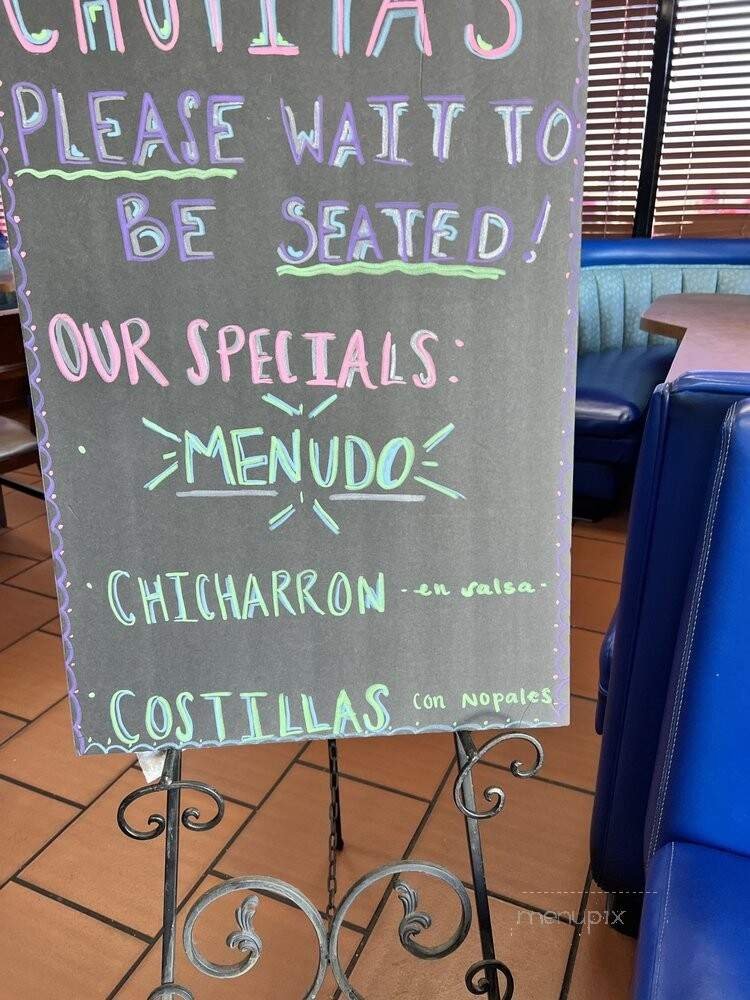 CHUYITA'S
PLEASE WAIT TO
BE SEATED!
OUR SPECIALS:
MENUDO
CHICHARRON -en salsa-
COSTILLAS con NOPALES
menupix